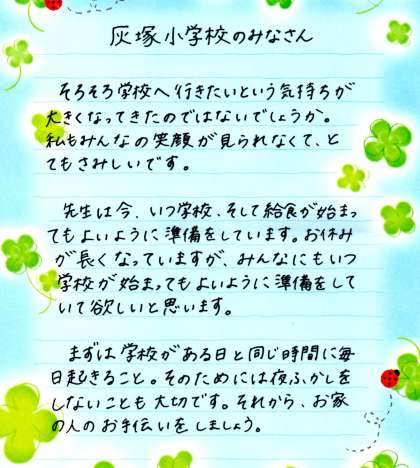 灰塚小学校のみなさん
そろそろ学校へ行きたいという気持ちが
大きくなってきたのではないでしょうか。
私もみんなの笑顔が見られなくて、と
てもさみしいです。
先生は今、いつ学校、そして給食が始まっ
てもよいように準備をしています。お休み
が長くなっていますが、みんなにもいつ
学校が始まってもよいように準備をして
いて欲しいと思います。
まずは学校がある日と同じ時間に毎
日起きること。そのためには夜ふかしを
しないことも大切です。それから、お家
の人のお手伝いをしましょう。